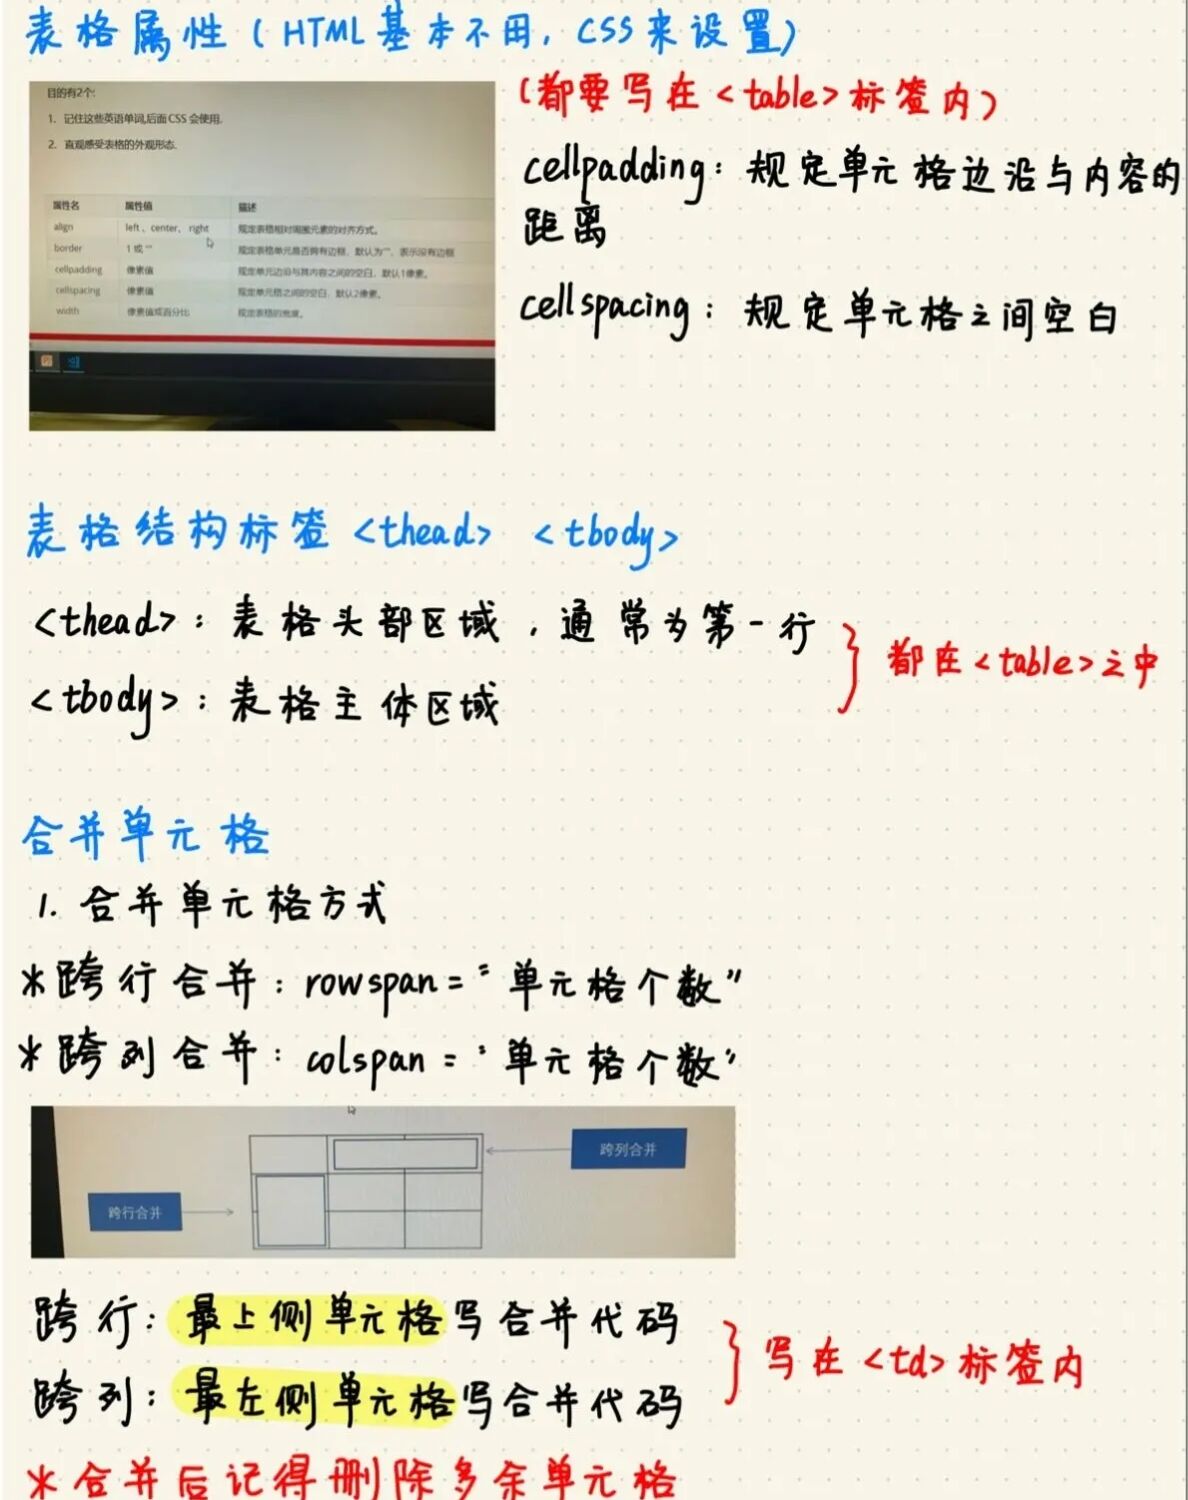 表格属性(HTML基本不用,CSS来设置)
目的有2个:
1. 记住这些英语单词,后面 CSS 会使用.
2. 直观感受表格的外观形态.
属性名 属性值 描述
align left、center、right 规定表格相对周围元素的对齐方式。
border 1 或 "" 规定表格单元是否拥有边框,默认为"",表示没有边框
cellpadding 像素值 规定单元边沿与其内容之间的空白,默认1像素。
cellspacing 像素值 规定单元格之间的空白,默认2像素。
width 像素值或百分比 规定表格的宽度。
(都要写在<table>标签内)
cellpadding:规定单元格边沿与内容的
距离
cellspacing:规定单元格之间空白
表格结构标签<thead> <tbody>
<thead>:表格头部区域,通常为第一行
<tbody>:表格主体区域
都在<table>之中
合并单元格
1. 合并单元格方式
*跨行合并:rowspan="单元格个数"
*跨列合并:colspan="单元格个数"
跨列合并
跨行合并
跨行:最上侧单元格写合并代码
跨列:最左侧单元格写合并代码
写在<td>标签内
*合并后记得删除多余单元格